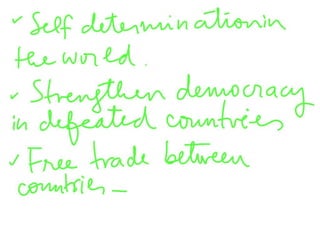 ✓ Self determination in
the world.
✓ Strengthen democracy
in defeated countries
✓ Free trade between
countries_